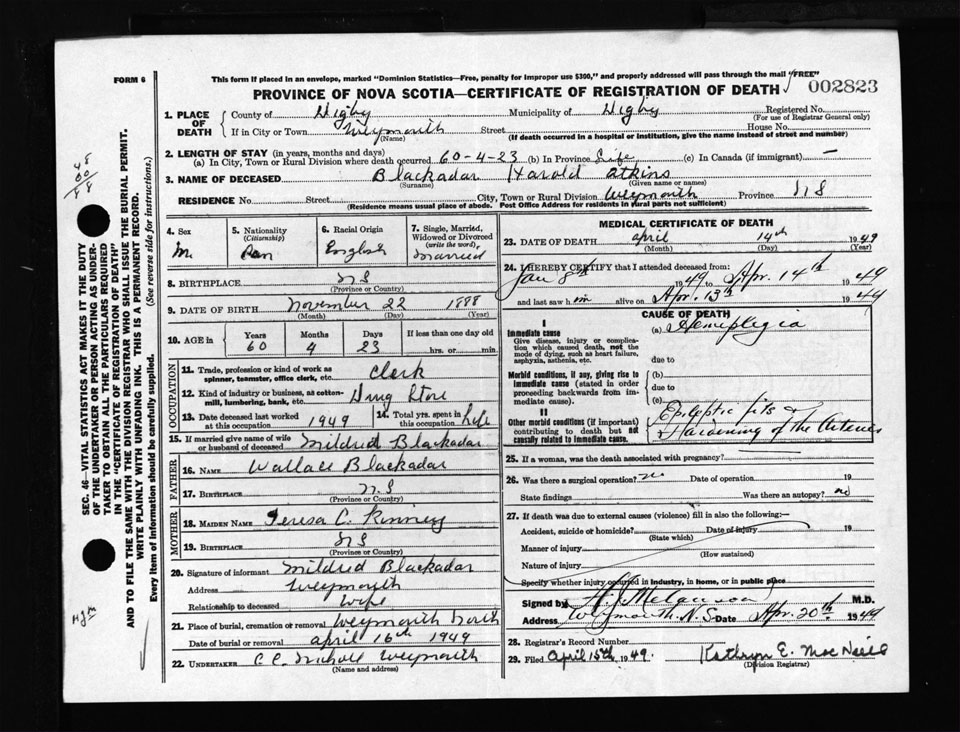 FORM 6
This form if placed in an envelope, marked "Dominion Statistics—Free, penalty for improper use $300," and properly addressed will pass through the mail "FREE"
PROVINCE OF NOVA SCOTIA—CERTIFICATE OF REGISTRATION OF DEATH
002823
1. PLACE OF DEATH
County of Digby Municipality of Digby Registered No.
(For use of Registrar General only)
If in City or Town Weymouth Street House No.
(Name) (If death occurred in a hospital or institution, give the name instead of street and number)
2. LENGTH OF STAY (in years, months and days)
(a) In City, Town or Rural Division where death occurred 60-4-23 (b) In Province Life (c) In Canada (if immigrant) —
3. NAME OF DECEASED Blackadar Harold Atkins
(Surname) (Given name or names)
RESIDENCE No. Street City, Town or Rural Division Weymouth Province N S
(Residence means usual place of abode. Post Office Address for residents in rural parts not sufficient)
4. Sex
M.
5. Nationality
(Citizenship)
Can
6. Racial Origin
English
7. Single, Married, Widowed or Divorced
(write the word)
Married
8. BIRTHPLACE N S
(Province or Country)
9. DATE OF BIRTH November 22 1888
(Month) (Day) (Year)
10. AGE in Years Months Days If less than one day old
60 4 23 hrs. or min.
OCCUPATION
11. Trade, profession or kind of work as spinner, teamster, office clerk, etc. Clerk
12. Kind of industry or business, as cotton-mill, lumbering, bank, etc. Drug Store
13. Date deceased last worked at this occupation 1949
14. Total yrs. spent in this occupation Life
15. If married give name of wife or husband of deceased Mildred Blackadar
FATHER
16. NAME Wallace Blackadar
17. BIRTHPLACE N S
(Province or Country)
MOTHER
18. MAIDEN NAME Teresa C. Kinney
19. BIRTHPLACE N S
(Province or Country)
20. Signature of informant Mildred Blackadar
Address Weymouth
Relationship to deceased Wife
21. Place of burial, cremation or removal Weymouth North
Date of burial or removal April 16th 1949
22. UNDERTAKER Weymouth
(Name and address)
MEDICAL CERTIFICATE OF DEATH
23. DATE OF DEATH April 14th 1949
(Month) (Day) (Year)
24. I HEREBY CERTIFY that I attended deceased from:
Jan 8th 1949 to Apr. 14th 1949
and last saw him alive on Apr. 13th 1949
CAUSE OF DEATH
I
Immediate cause
Give disease, injury or complication which caused death, not the mode of dying, such as heart failure, asphyxia, asthenia, etc.
(a) Hemiplegia
due to
Morbid conditions, if any, giving rise to immediate cause (stated in order proceeding backwards from immediate cause).
(b)
due to
(c)
II
Other morbid conditions (if important) contributing to death but not causally related to immediate cause.
Epileptic fits &
Hardening of the Arteries
25. If a woman, was the death associated with pregnancy?
26. Was there a surgical operation? no Date of operation 19
State findings Was there an autopsy? no
27. If death was due to external causes (violence) fill in also the following:—
Accident, suicide or homicide? Date of injury 19
(State which)
Manner of injury
(How sustained)
Nature of injury
Specify whether injury occurred in industry, in home, or in public place
Signed by Melanson M.D.
Address Weymouth, N.S. Date Apr. 20th 1949
28. Registrar's Record Number
29. Filed April 15th, 1949. Kathryn E. MacNeill
(Division Registrar)
SEC. 46—VITAL STATISTICS ACT MAKES IT THE DUTY
OF THE UNDERTAKER OR PERSON ACTING AS UNDER-
TAKER TO OBTAIN ALL THE PARTICULARS REQUIRED
IN THE "CERTIFICATE OF REGISTRATION OF DEATH"
AND TO FILE THE SAME WITH THE DIVISION REGISTRAR WHO SHALL ISSUE THE BURIAL PERMIT.
WRITE PLAINLY WITH UNFADING INK. THIS IS A PERMANENT RECORD.
Every item of Information should be carefully supplied. (See reverse side for instructions.)